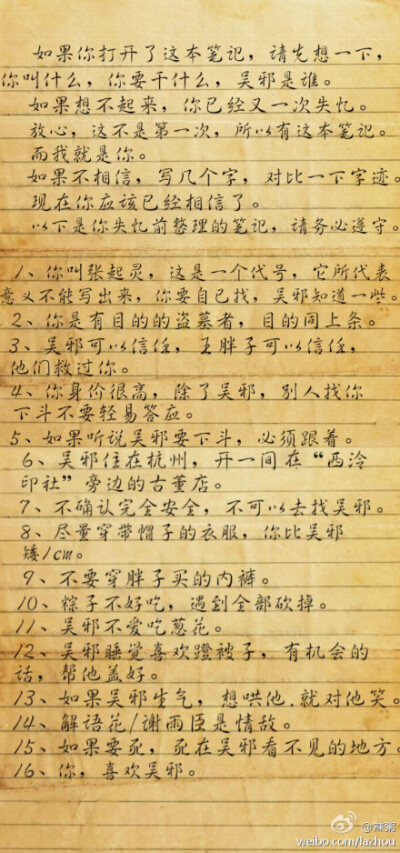 如果你打开了这本笔记，请先想一下，
你叫什么，你要干什么，吴邪是谁。
如果想不起来，你已经又一次失忆。
放心，这不是第一次，所以有这本笔记。
而我就是你。
如果不相信，写几个字，对比一下字迹。
现在你应该已经相信了。
以下是你失忆前整理的笔记，请务必遵守。
1、你叫张起灵，这是一个代号，它所代表
意义不能写出来，你要自己找，吴邪知道一些。
2、你是有目的的盗墓者，目的同上条。
3、吴邪可以信任，王胖子可以信任，
他们救过你。
4、你身价很高，除了吴邪，别人找你
下斗不要轻易答应。
5、如果听说吴邪要下斗，必须跟着。
6、吴邪住在杭州，开一间在“西泠
印社”旁边的古董店。
7、不确认完全安全，不可以去找吴邪。
8、尽量穿带帽子的衣服，你比吴邪
矮1cm。
9、不要穿胖子买的内裤。
10、粽子不好吃，遇到全部砍掉。
11、吴邪不爱吃葱花。
12、吴邪睡觉喜欢蹬被子，有机会的
话，帮他盖好。
13、如果吴邪生气，想哄他，就对他笑。
14、解语花/谢雨臣是情敌。
15、如果要死，死在吴邪看不见的地方。
16、你，喜欢吴邪。
weibo.com/lazhou